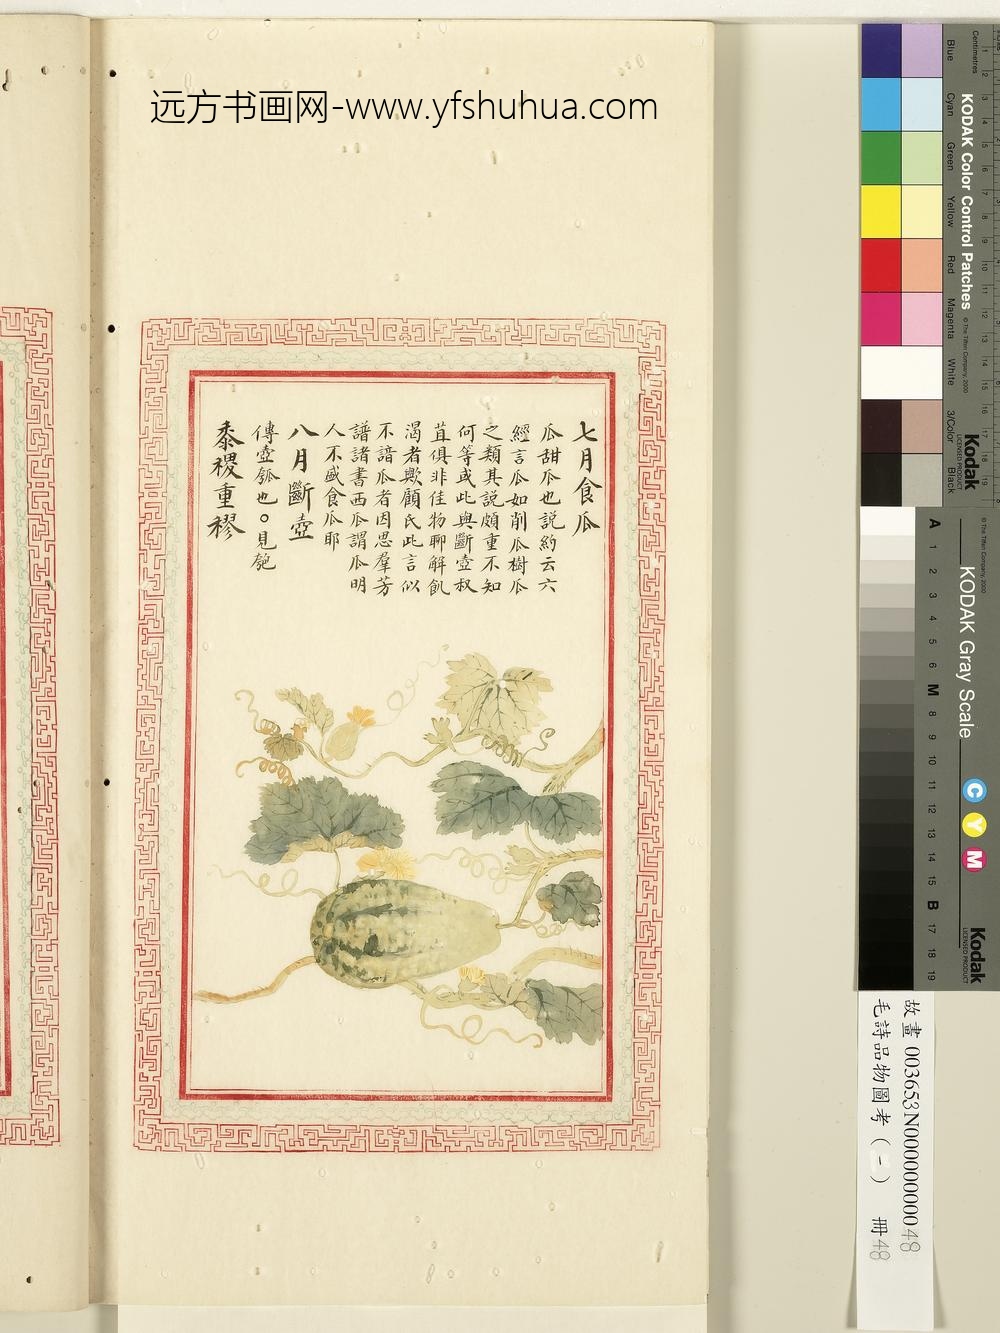 远方书画网-www.yfshuhua.com
七月食瓜
瓜甜瓜也説約云六
經言瓜如削瓜樹瓜
之類其説頗重不知
何等或此與斷壺叔
苴俱非佳物聊解飢
渴者歟顧氏此言似
不諳瓜者因思羣芳
譜諸書西瓜謂瓜明
人不盛食瓜耶
八月斷壺
傳壺瓠也○見匏
黍稷重穋
Centimetres
Blue
Cyan
Green
Yellow
Red
Magenta
White
3/Color
Black
KODAK Color Control Patches
© The Tiffen Company, 2000
Kodak
LICENSED PRODUCT
KODAK Gray Scale
© The Tiffen Company, 2000
A 1 2 3 4 5 6 M 8 9 10 11 12 13 14 15 B 17 18 19
C Y M
Kodak
LICENSED PRODUCT
故畫 003653N000000000048
毛詩品物圖考(一) 冊48